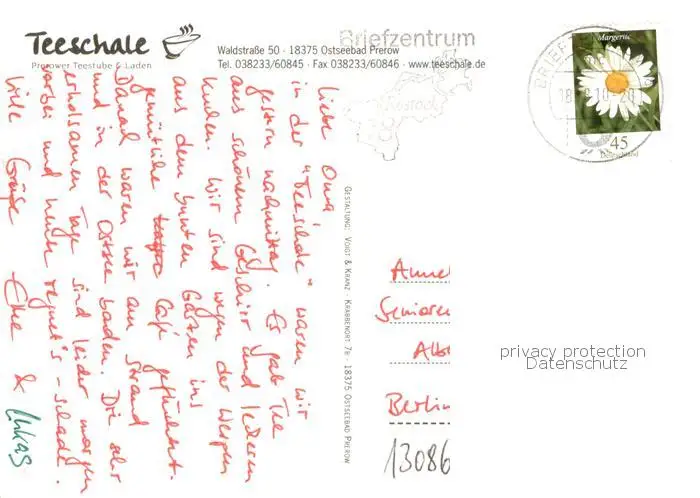 Teeschale
Prerower Teestube & Laden
Waldstraße 50 · 18375 Ostseebad Prerow
Tel. 038233/60845 · Fax 038233/60846 · www.teeschale.de
Briefzentrum
Rostock
Margerite
45
Deutschland
Liebe Oma,
in der "Teeschale" waren wir
gestern nachmittag. Es gab Tee
aus schönem Geschirr und leckeren
Kuchen. Wir sind wegen der Wespen
aus dem bunten Garten ins
gemütliche Café geflüchtet.
Danach waren wir am Strand
und in der Ostsee baden. Die sehr
erholsamen Tage sind leider morgen
vorbei und heute regnet's - schade.
Viele Grüße Elke & Lukas
GESTALTUNG: VOIGT & KRANZ · KRABBENORT 7B · 18375 OSTSEEBAD PREROW
Senioren
Berlin
13086
privacy protection
Datenschutz